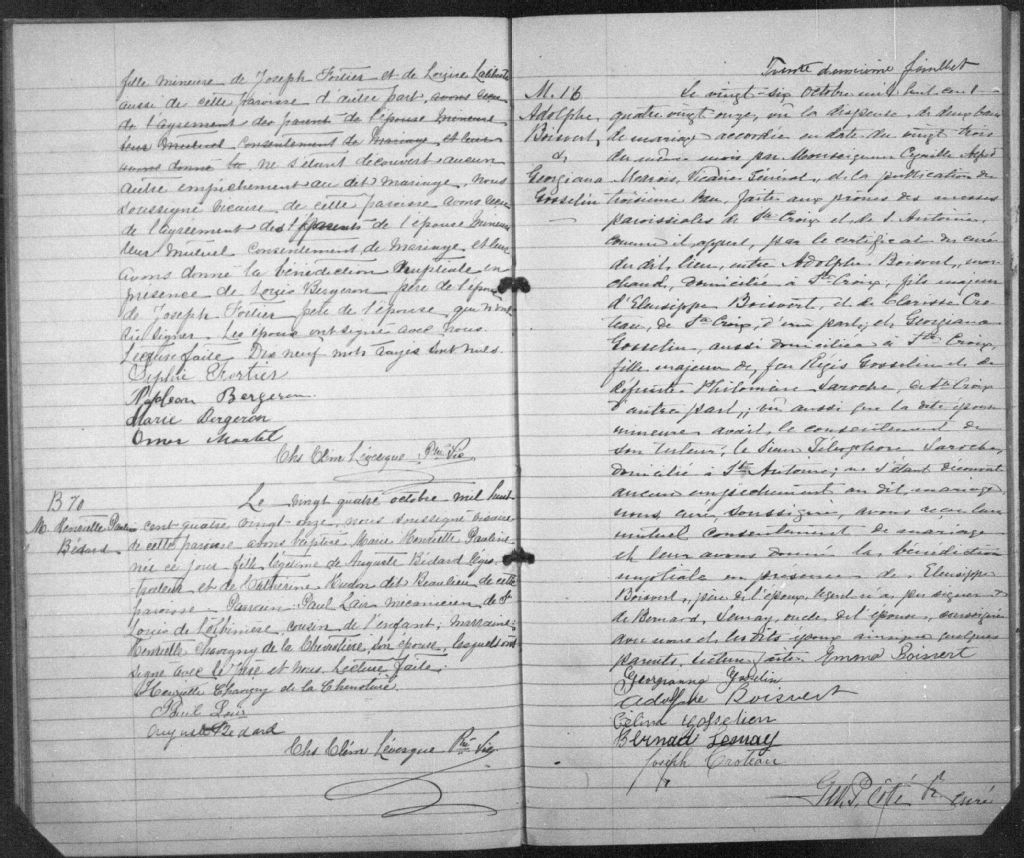 fille mineure de Joseph Fortier et de Louise Laliberté
aussi de cette paroisse d'autre part, avons reçu
de l'agrement des parents de l'épouse mineure
leur mutuel consentement de mariage et leur
avons donné la ne s'étant découvert aucun
autre empêchement au dit mariage, nous
soussigné vicaire de cette paroisse avons reçu
de l'agrement des parents de l'épouse mineure
leur mutuel consentement de mariage, et leur
avons donné la bénédiction nuptiale en
présence de Louis Bergeron père de l'époux
de Joseph Fortier père de l'épouse, qui n'ont
su signer. Les époux ont signé avec nous.
Lecture faite. Dix neuf mots rayés sont nuls.
Sophie Fortier
Napoléon Bergeron
Marie Bergeron
Omer Martel
Chs Clém Lévesque Ptre Vic
B 70
M. Henriette Pauline
Bédard
Le vingt quatre octobre mil huit
cent quatre vingt onze, nous soussigné vicaire
de cette paroisse avons baptisé Marie Henriette Pauline
née ce jour, fille légitime de Auguste Bédard
et de Catherine Hudon dit Beaulieu de cette
paroisse. Parrain Paul Lair mécanicien de St
Louis de Lotbinière, cousin de l'enfant; marraine
Henriette Chavigny de la Chevrotière, son épouse, lesquels ont
signé avec le Père et nous. Lecture faite.
Henriette Chavigny de la Chevrotière
Paul Lair
Auguste Bédard
Chs Clém Lévesque Ptre Vic
Trente deuxième feuillet
M. 16
Adolphe
Boisvert
&
Georgiana
Gosselin
Le vingt-six octobre mil huit cent
quatre vingt onze, vu la dispense de deux bans
de mariage accordée en date du vingt trois
du même mois par Monseigneur Cyrille Alfred
Marois, Vicaire Général, & la publication du
troisième ban, faite aux prônes des messes
paroissiales de Ste Croix et de S. Antoine,
comme il appert, par le certificat du curé
du dit lieu, entre Adolphe Boisvert, mar-
chand, domicilié à Ste Croix, fils majeur
d'Elusippe Boisvert, et de Clarisse Cro-
teau, de Ste Croix, d'une part; et Georgiana
Gosselin, aussi domiciliée à Ste Croix,
fille majeure de feu Régis Gosselin et de
défunte Philomène Laroche, de Ste Croix
d'autre part; vu aussi que la dite épouse
mineure avait le consentement de
son tuteur, le sieur Télesphore Laroche,
domicilié à St Antoine; ne s'étant découvert
aucun empêchement au dit mariage,
nous curé, soussigné, avons reçu leur
mutuel consentement de mariage
et leur avons donné la bénédiction
nuptiale en présence de Elusippe
Boisvert, père de l'époux, lequel n'a pu signer &
de Bernard Lemay, oncle de l'épouse, soussigné
avec nous et les dits époux ainsi que quelques
parents, lecture faite. Emma Boisvert
Georgianna Gosselin
Adolphe Boisvert
Célina Gosselin
Bernad Lemay
Joseph Croteau
Côté Ptre curé